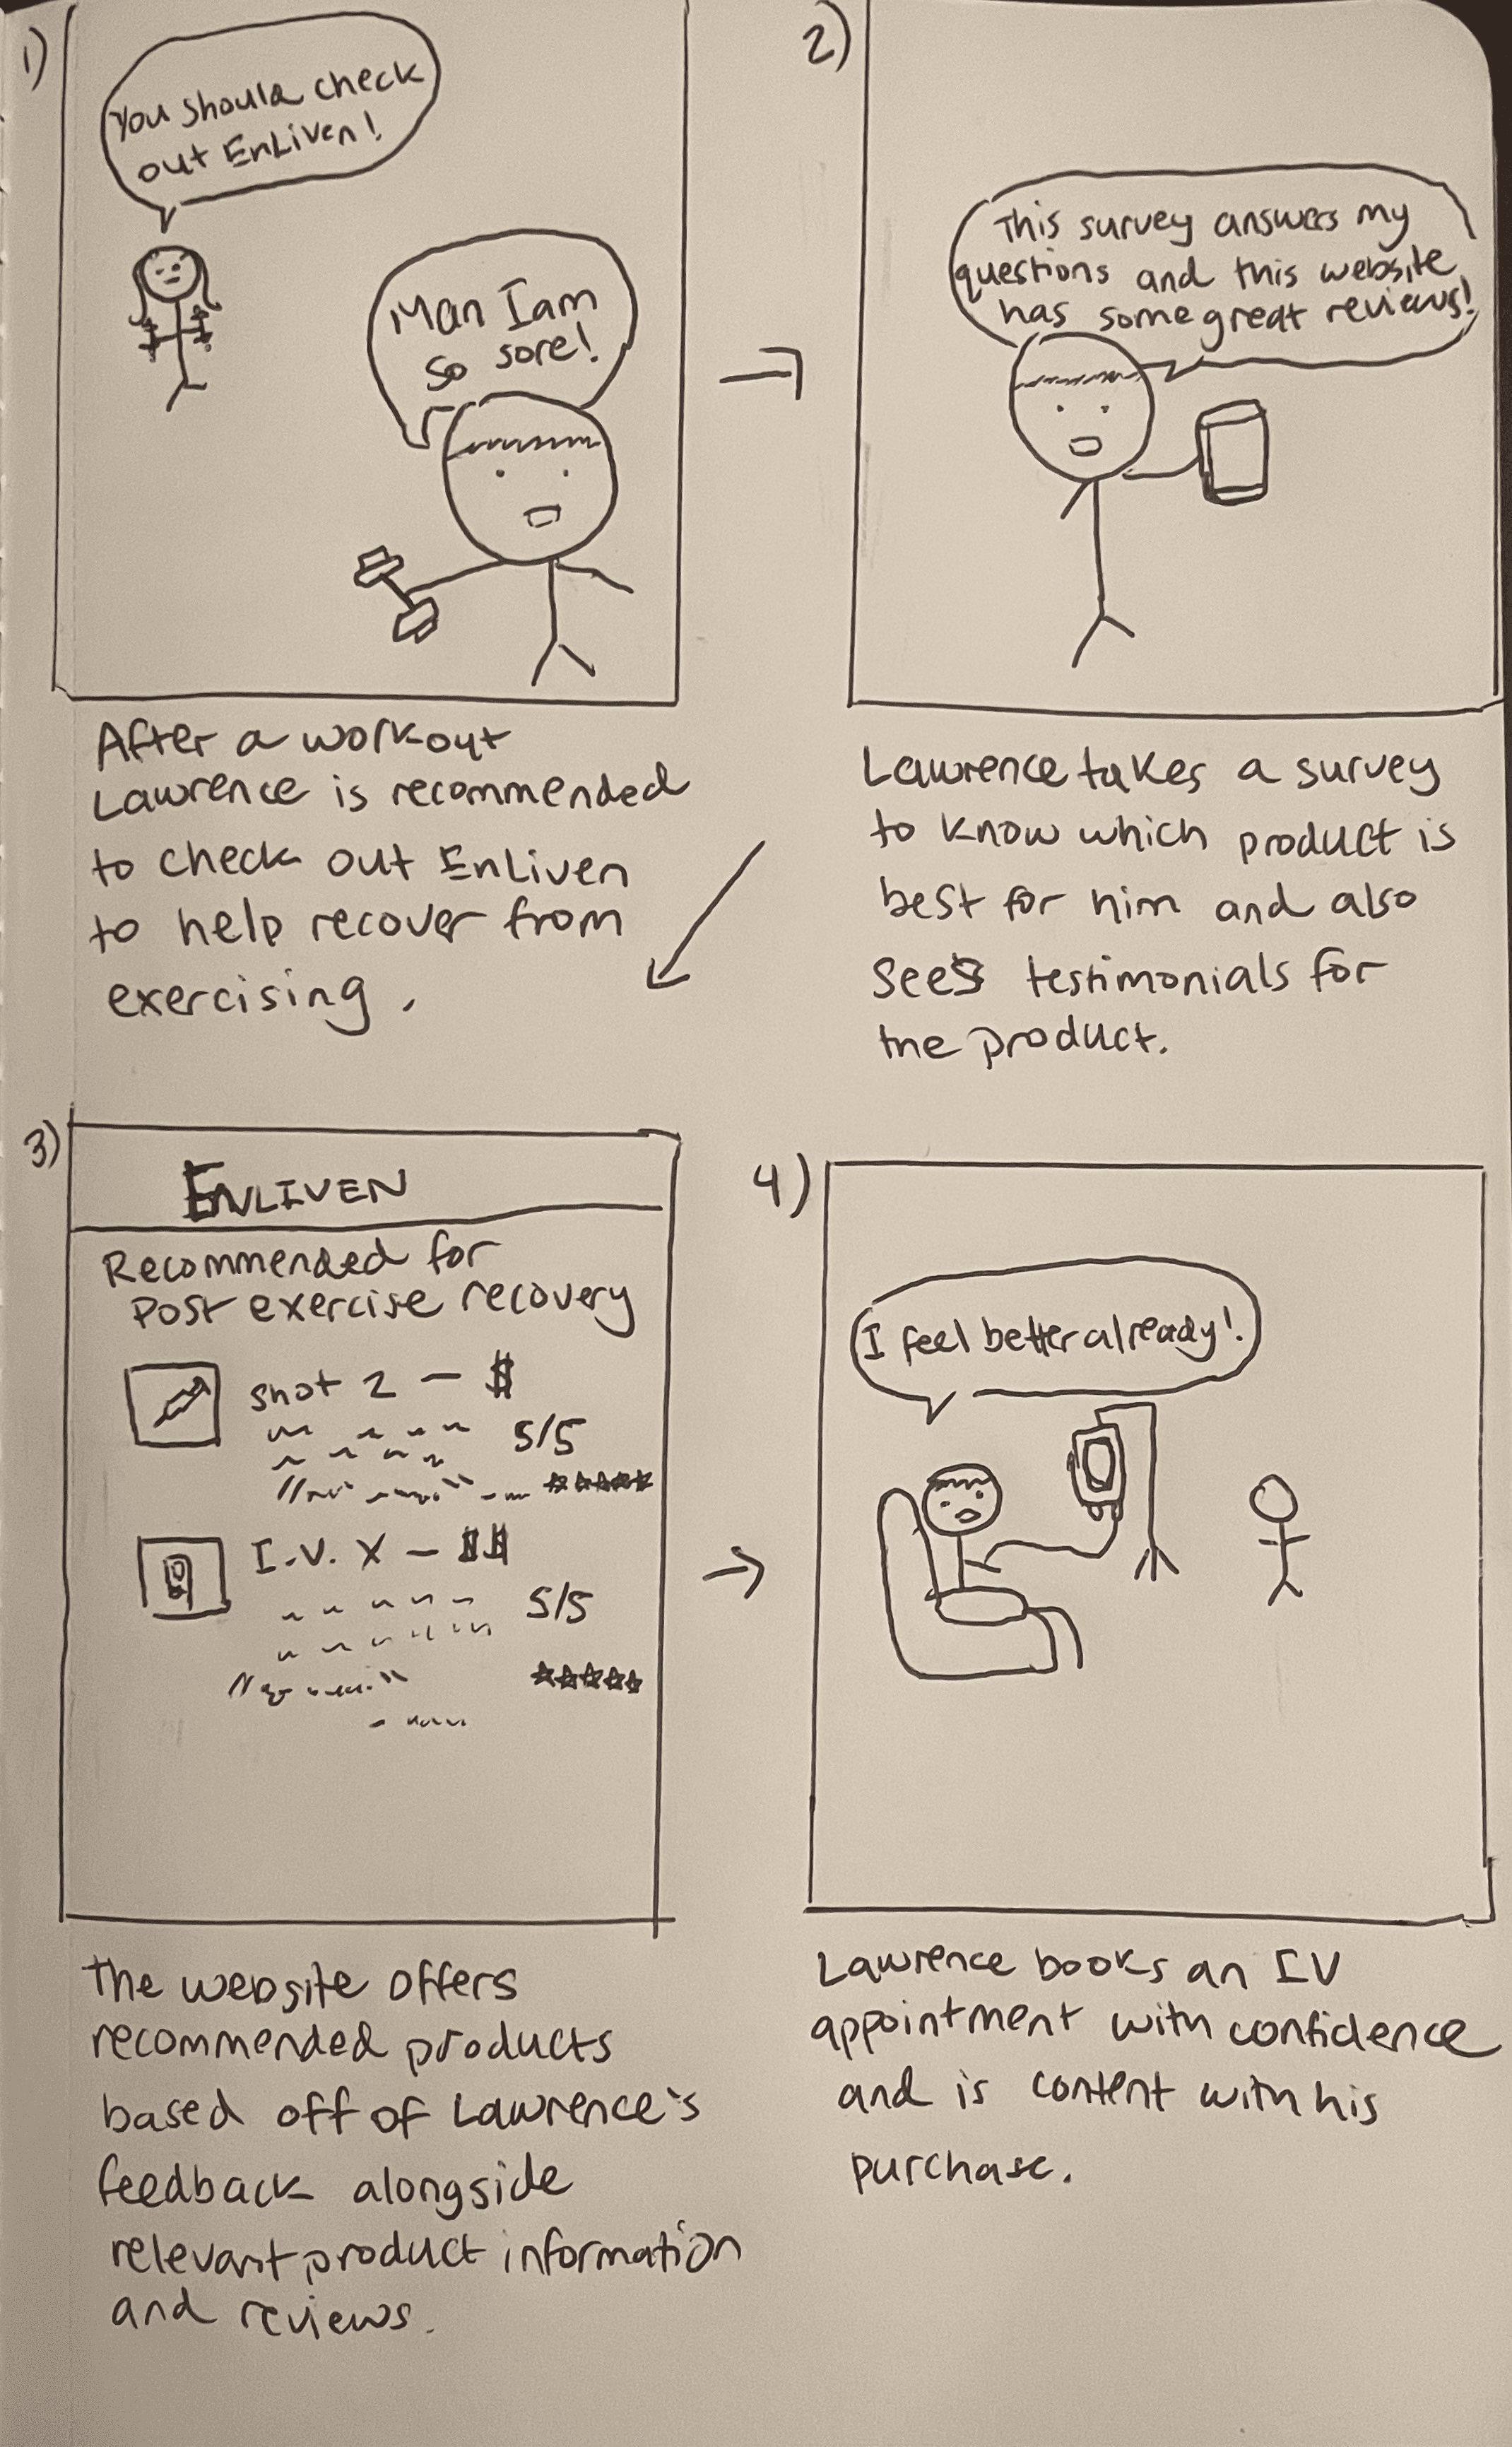 1)
You should check
out EnLiven!
Man I am
so sore!
After a workout
Lawrence is recommended
to check out EnLiven
to help recover from
exercising.
2)
This survey answers my
questions and this website
has some great reviews!
Lawrence takes a survey
to know which product is
best for him and also
sees testimonials for
the product.
3)
ENLIVEN
Recommended for
Post exercise recovery
shot 2 - $
5/5
I.V. X - $$
5/5
The website offers
recommended products
based off of Lawrence's
feedback alongside
relevant product information
and reviews.
4)
I feel better already!
Lawrence books an IV
appointment with confidence
and is content with his
purchase.